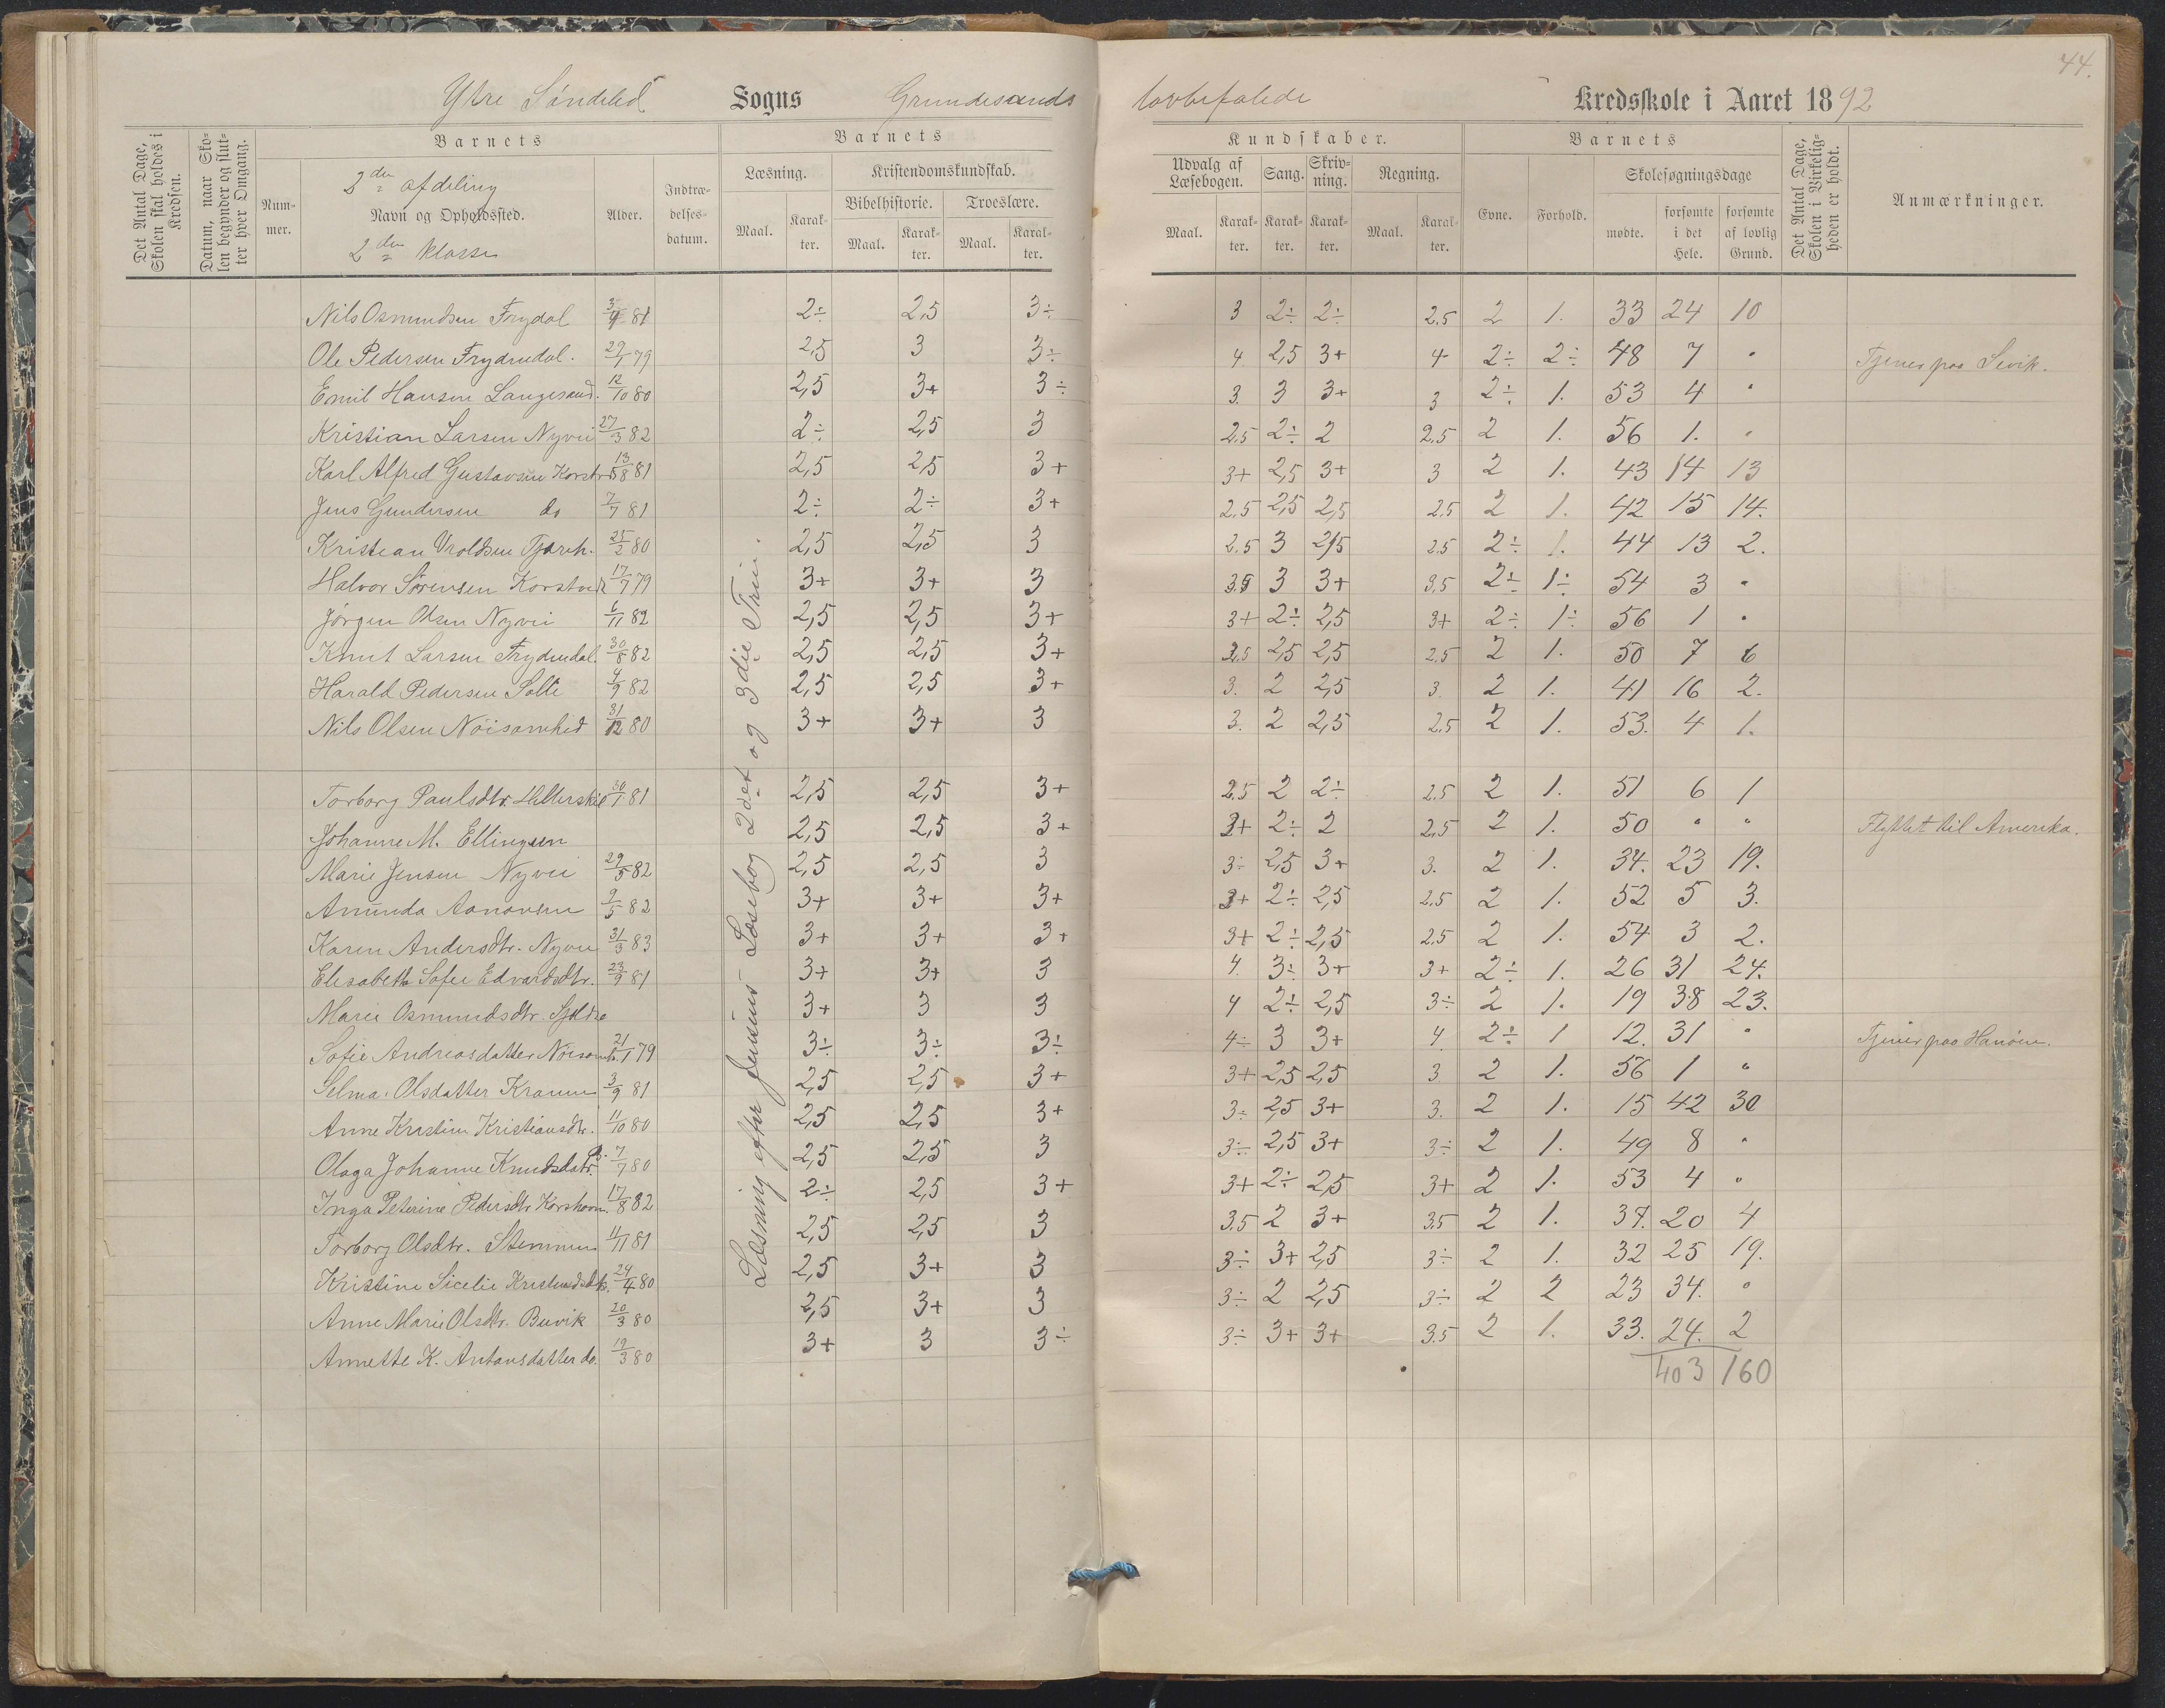 44.
Ytre Söndeled Sogns Grundesunds lovbefalede Kredsskole i Aaret 1892
Det Antal Dage, Skolen skal holdes i Kredsen.
Datum, naar Skolen begynder og slutter hver Omgang.
Nummer.
Barnets
3die afdeling
Navn og Opholdssted.
2den Klasse
Alder.
Indtrædelsesdatum.
Barnets
Læsning.
Maal.
Karakter.
Kristendomskundskab.
Bibelhistorie.
Maal.
Karakter.
Troeslære.
Maal.
Karakter.
Kundskaber.
Udvalg af Læsebogen.
Maal.
Karakter.
Sang.
Karakter.
Skrivning.
Karakter.
Regning.
Maal.
Karakter.
Barnets
Evne.
Forhold.
Skolesøgningsdage
mødte.
forsømte i det Hele.
forsømte af lovlig Grund.
Det Antal Dage, Skolen i Virkeligheden er holdt.
Anmærkninger.
Læsning efter Jensens Læsebog 2det og 3die Trin.
Nils Osmundsen Frydal 3/9 81 2÷ 2,5 3÷ 3 2÷ 2÷ 2.5 2 1. 33 24 10
Ole Pedersen Frydendal. 29/1 79 2,5 3 3÷ 4 2,5 3+ 4 2÷ 2÷ 48 7 " Tjener paa Sevik.
Emil Hansen Langesand. 12/10 80 2,5 3+ 3÷ 3. 3 3+ 3 2÷ 1. 53 4 "
Kristian Larsen Nyvei 27/3 82 2÷ 2,5 3 2.5 2÷ 2 2.5 2 1. 56 1. "
Karl Alfred Gustavsen 13/8 81 2,5 2,5 3+ 3+ 2,5 3+ 3 2 1. 43 14 13
Jens Gundersen do 7/7 81 2÷ 2÷ 3+ 2.5 2,5 2,5 2.5 2 1. 42 15 14.
Kristian Vroldsen 25/2 80 2,5 2,5 3 2.5 3 2,5 2.5 2÷ 1. 44 13 2.
Halvor Sörensen Korstvedt 17/7 79 3+ 3+ 3 3.5 3 3+ 3,5 2÷ 1÷ 54 3 "
Jörgen Olsen Nyvei 6/11 82 2,5 2,5 3+ 3+ 2÷ 2,5 3+ 2÷ 1÷ 56 1 "
Knut Larsen Frydendal. 30/8 82 2,5 2,5 3+ 2.5 2,5 2,5 2.5 2 1. 50 7 6
Harald Pedersen Solli 4/9 82 2,5 2,5 3+ 3. 2 2,5 3. 2 1. 41 16 2.
Nils Olsen Nöisomhed 31/12 80 3+ 3+ 3 3. 2 2,5 2,5 2 1. 53. 4 1.
Torborg Paulsdtr. 30/1 81 2,5 2,5 3+ 2.5 2 2÷ 2.5 2 1. 51 6 1
Johanne M. Ellingsen 2,5 2,5 3+ 3+ 2÷ 2 2,5 2 1. 50 " " Flyttet til Amerika.
Marie Jensen Nyvei 29/5 82 2,5 2,5 3 3÷ 2,5 3+ 3. 2 1. 34. 23 19.
Amunda Aanonsen 9/5 82 3+ 3+ 3+ 3+ 2÷ 2,5 2,5 2 1. 52 5 3.
Karen Andersdtr. Nyvei 31/3 83 3+ 3+ 3+ 3+ 2÷ 2,5 2,5 2 1. 54 3 2.
Elisabeth Sofie Edvardsdtr. 23/9 81 3+ 3+ 3 4. 3÷ 3+ 3+ 2÷ 1. 26 31 24.
Marie Osmundsdtr. 3+ 3 3 4 2÷ 2,5 3÷ 2 1. 19 38 23.
Sofie Andreasdatter Nöisomh. 21/1 79 3÷ 3÷ 3÷ 4÷ 3 3+ 4. 2÷ 1 12. 31 " Tjener paa Hanöen.
Selma Olsdatter 3/9 81 2,5 2,5 3+ 3+ 2,5 2,5 3 2 1. 56 1 "
Anne Kristine Kristiansdtr. 11/10 80 2,5 2,5 3+ 3÷ 2,5 3+ 3. 2 1. 15 42 30
Olaga Johanne Knudsdatr. 7/7 80 2,5 2,5 3 3÷ 2,5 3+ 3÷ 2 1. 49 8 "
Inga Peterine Pedersdtr. 17/8 82 2÷ 2,5 3+ 3+ 2÷ 2,5 3+ 2 1. 53 4 "
Torborg Olsdtr. Stemmen 11/11 81 2,5 2,5 3 3.5 2 3+ 3.5 2 1. 37. 20 4
Kristine Sicelie 24/4 80 2,5 3+ 3 3÷ 3+ 2,5 3÷ 2 1. 32 25 19.
Anne Marie Olsdtr. Buvik 20/3 80 2,5 3+ 3 3÷ 2 2,5 3÷ 2 2 23 34. "
Annette K. Antonsdatter do. 19/3 80 3+ 3 3÷ 3÷ 3+ 3+ 3.5 2 1. 33. 24. 2
403 160